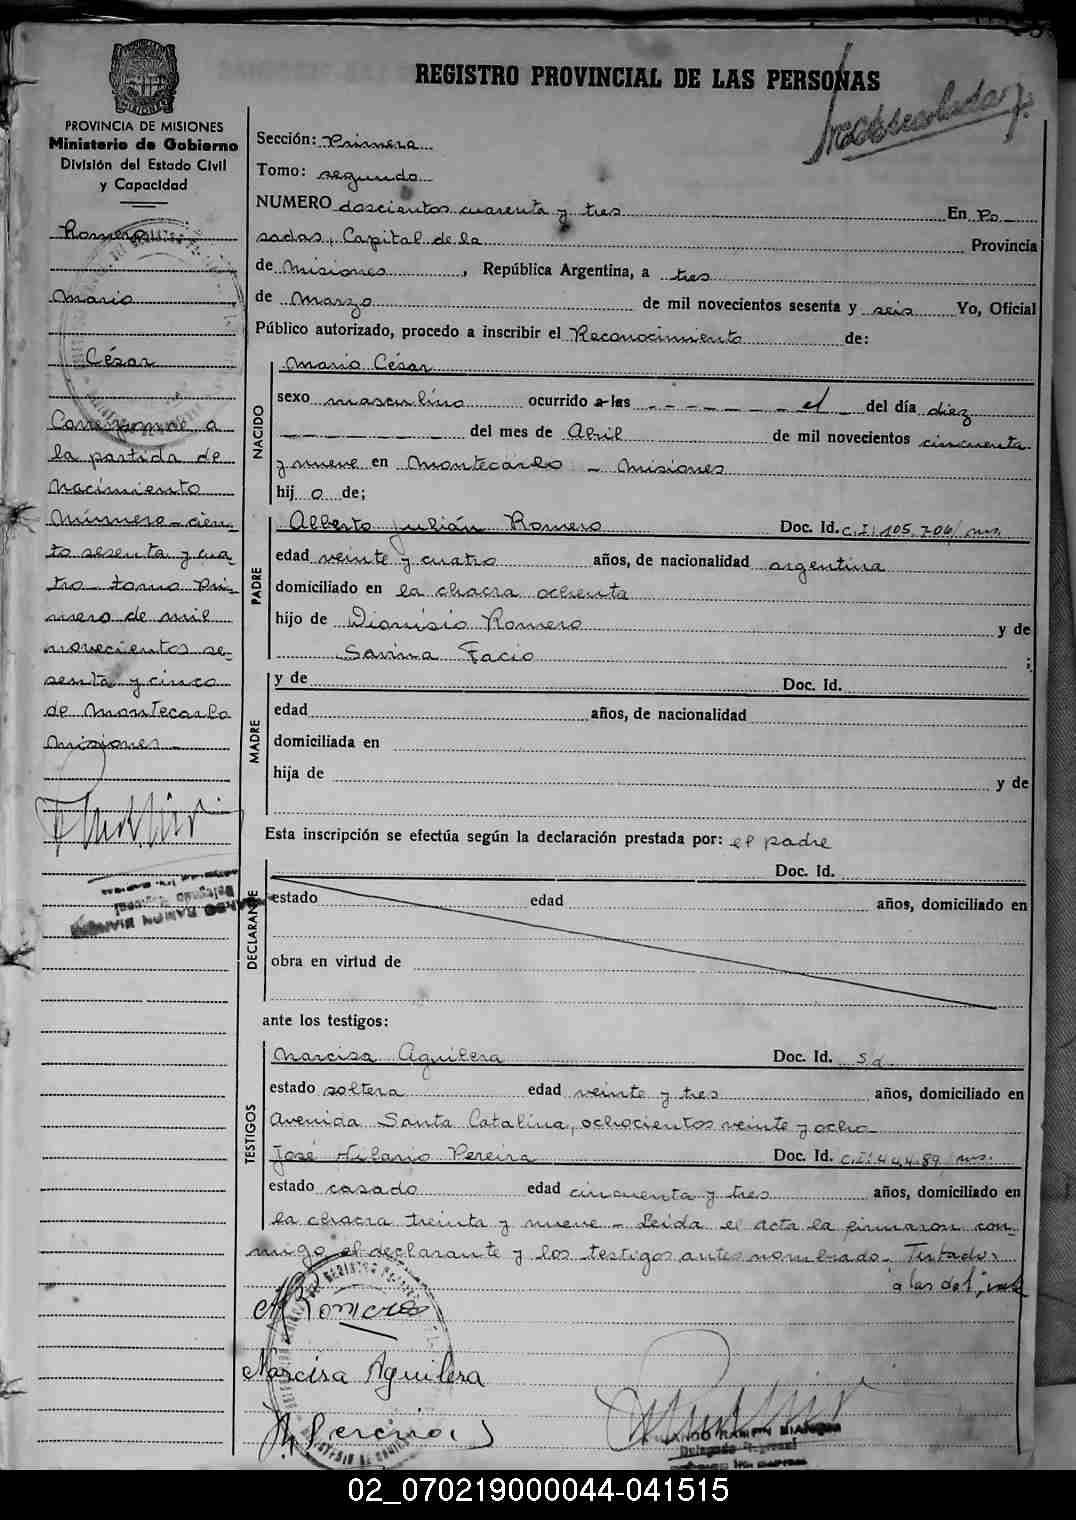 REGISTRO PROVINCIAL DE LAS PERSONAS
PROVINCIA DE MISIONES
Ministerio de Gobierno
División del Estado Civil
y Capacidad
Romero
Mario
César
Corresponde a
la partida de
nacimiento
número cien-
to sesenta y cua-
tro tomo pri-
mero de mil
novecientos se-
senta y cinco
de Montecarlo
Misiones.-
Sección: Primera
Tomo: segundo
NUMERO doscientos cuarenta y tres En Po-
sadas, Capital de la Provincia
de Misiones, República Argentina, a tres
de Marzo de mil novecientos sesenta y seis Yo, Oficial
Público autorizado, procedo a inscribir el Reconocimiento de:
NACIDO
Mario César
sexo masculino ocurrido a las - - - - - el - del día diez
- - - - - - del mes de Abril de mil novecientos cincuenta
y nueve en Montecarlo - Misiones
hij o de;
PADRE
Alberto Julián Romero Doc. Id. C.I: 105.706/ms.
edad veinte y cuatro años, de nacionalidad argentina
domiciliado en la chacra ochenta
hijo de Dionisio Romero y de
Savina Facio ;
MADRE
y de Doc. Id.
edad años, de nacionalidad
domiciliada en
hija de y de
Esta inscripción se efectúa según la declaración prestada por: el padre
DECLARANTE
Doc. Id.
estado edad años, domiciliado en
obra en virtud de
ante los testigos:
TESTIGOS
Narcisa Aguilera Doc. Id. s/d
estado soltera edad veinte y tres años, domiciliado en
Avenida Santa Catalina, ochocientos veinte y ocho
José Hilario Pereira Doc. Id. C.I: 44.489/ms.
estado casado edad cincuenta y tres años, domiciliado en
la chacra treinta y nueve - Leída el acta la firmaron con-
migo el declarante y los testigos antes nombrado - Testado:
"a las del", vale
A Romero
Narcisa Aguilera
Pereira
RAMON BIANCHI
Delegado Regional
02_070219000044-041515